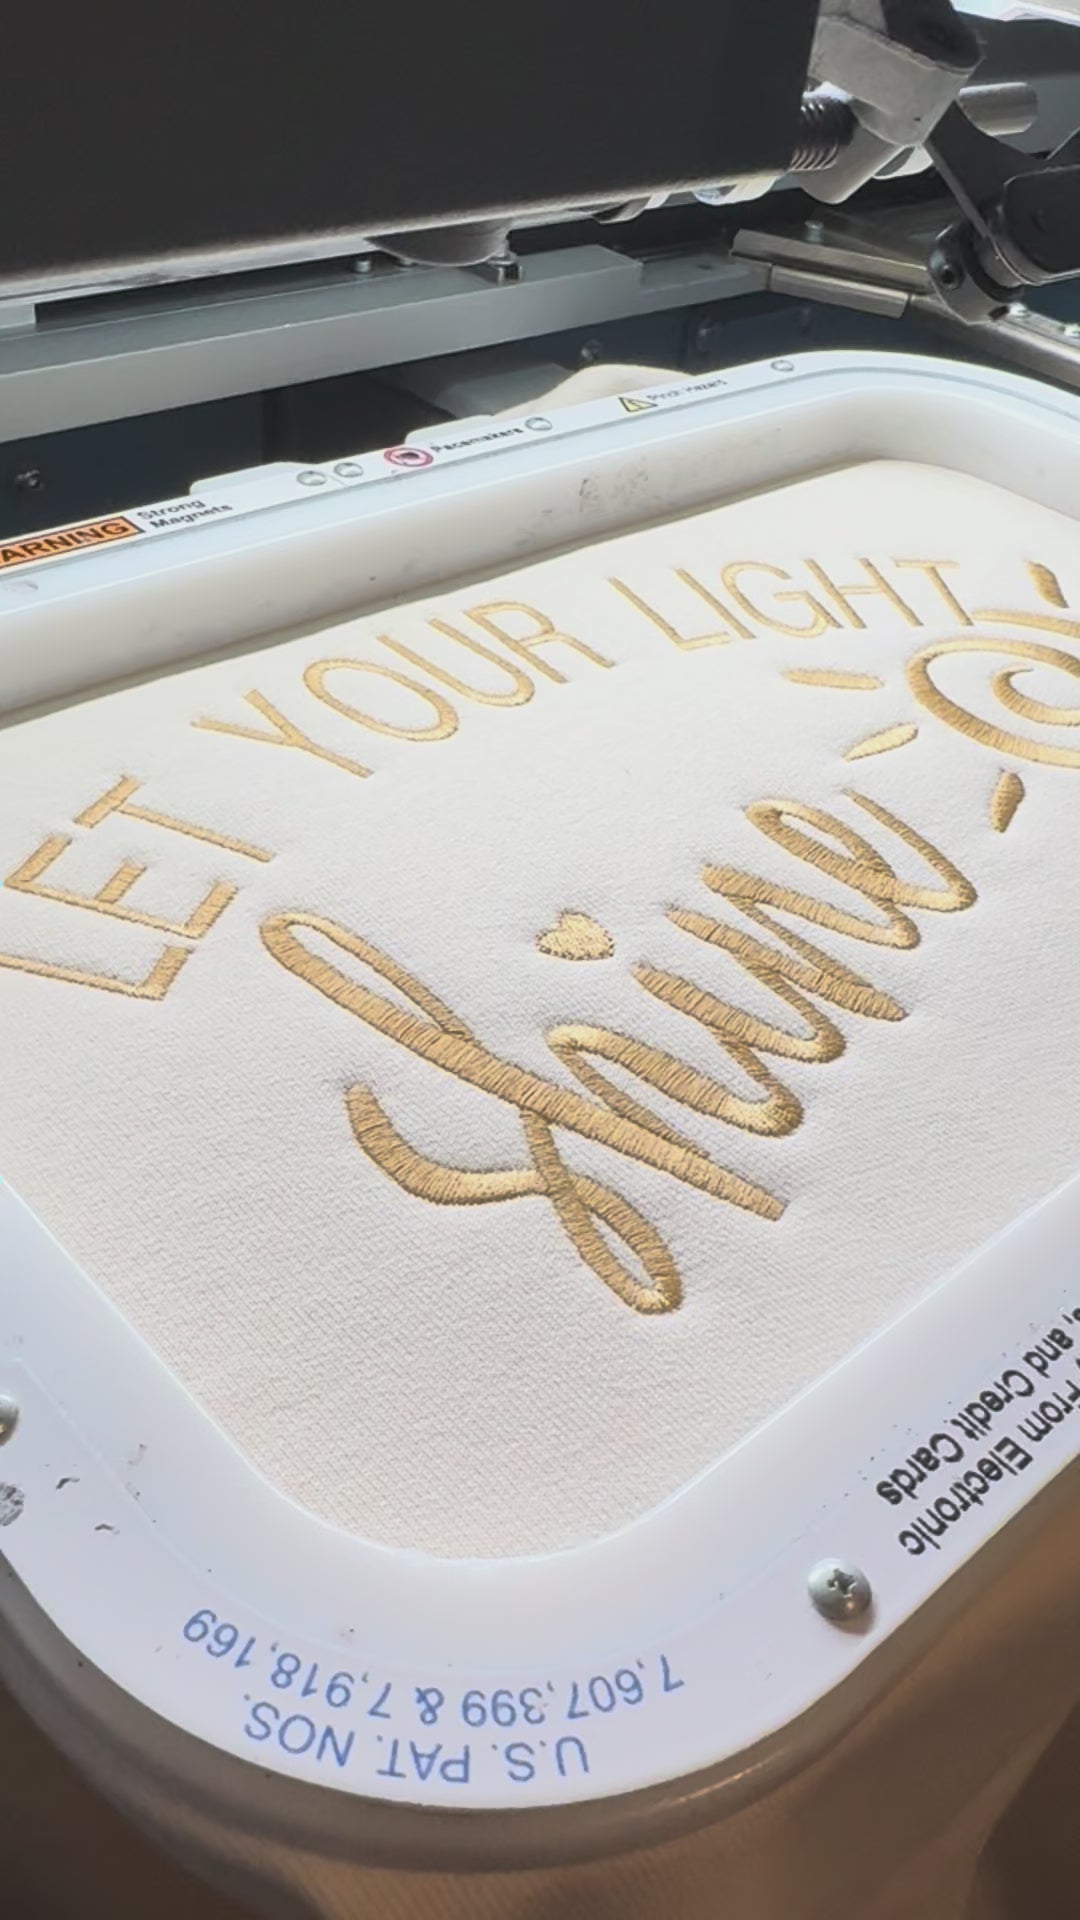 WARNING
Strong
Magnets
Pacemakers
Pinch Hazard
LET YOUR LIGHT
shine
From Electronic
, and Credit Cards
U.S. PAT. NOS.
7,607,399 & 7,918,169